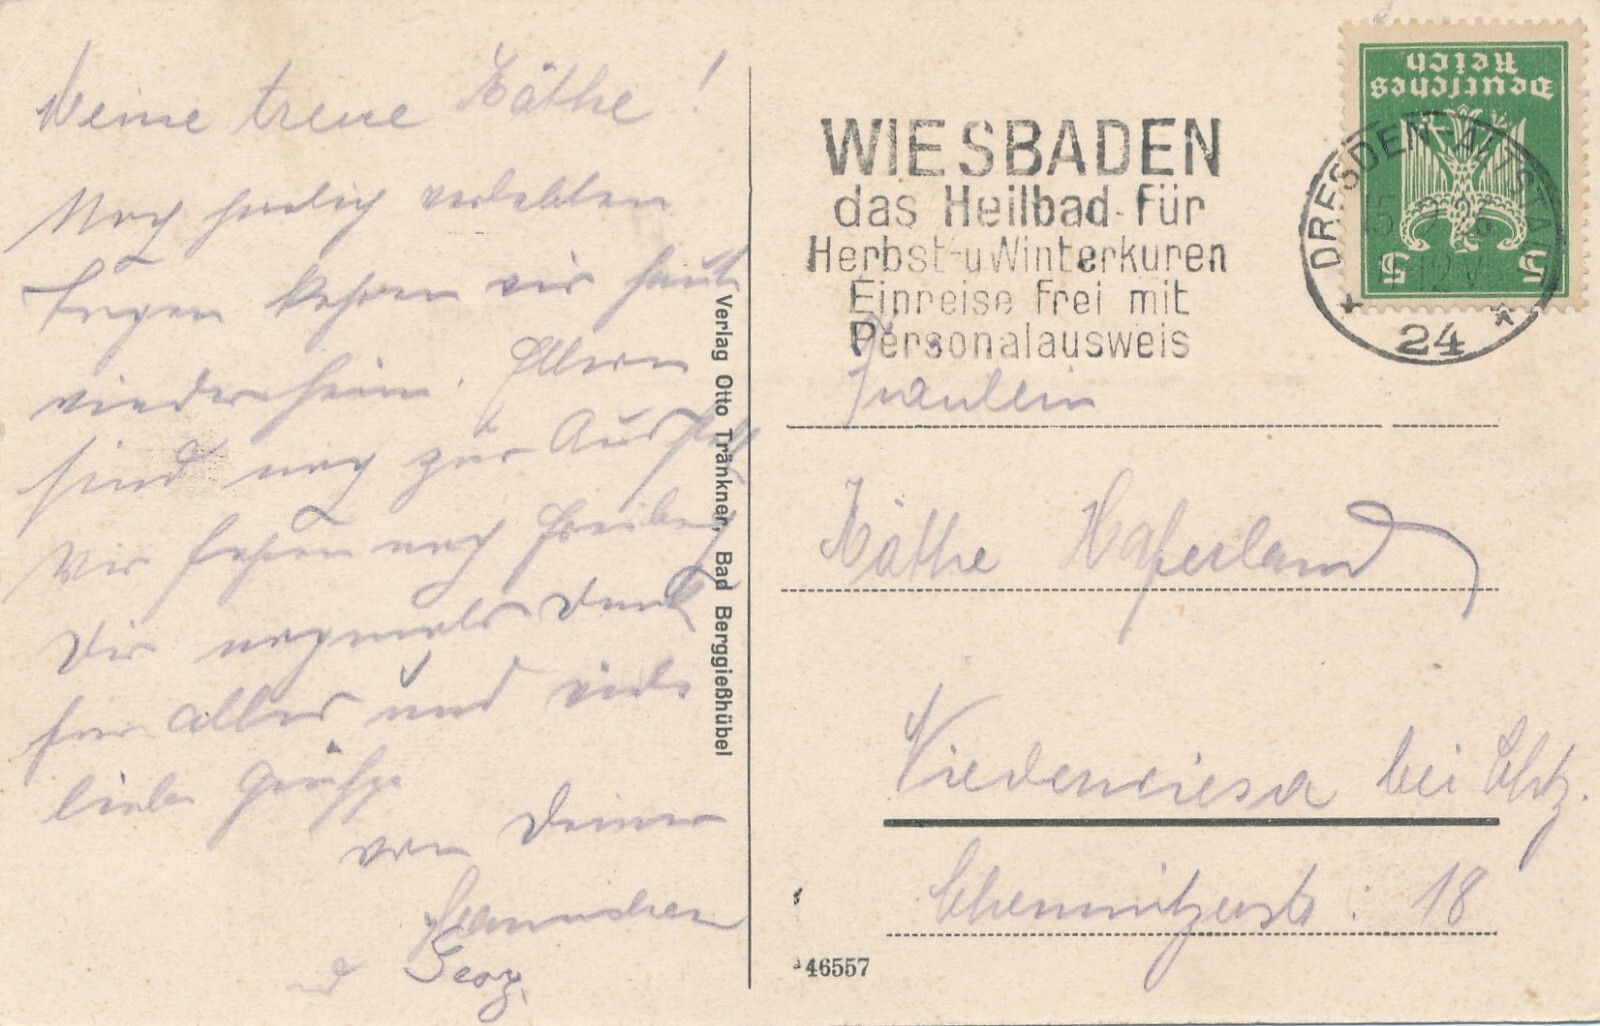 Meine treue Käthe!
Nach herrlich verlebten
Tagen kehren wir heute
wieder heim. Eltern
sind noch zur
Wir fahren nach Freiberg
Dir nochmals Dank
für alles und viele
liebe Grüße
von Deinen
Hannchen
u Georg.
Verlag Otto Tränkner, Bad Berggießhübel
WIESBADEN
das Heilbad für
Herbst-u Winterkuren
Einreise frei mit
Personalausweis
Deutsches
Reich
5 5
DRESDEN-ALTSTADT
12 V
24
Fräulein
Käthe Haferland
Niederwiesa bei Chtz.
Chemnitzerstr. 18
46557